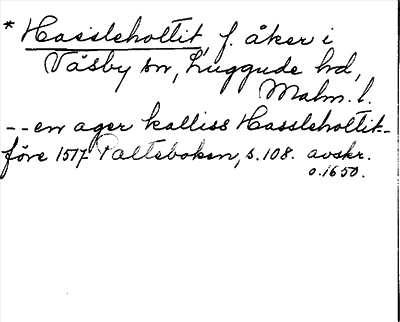 * Hassleholtit, f. åker i
Väsby sn, Luggude hd,
Malm. l.
-- en ager kalliss Hassleholtit -
före 1517 Palteboken, s. 108. avskr.
o. 1650.